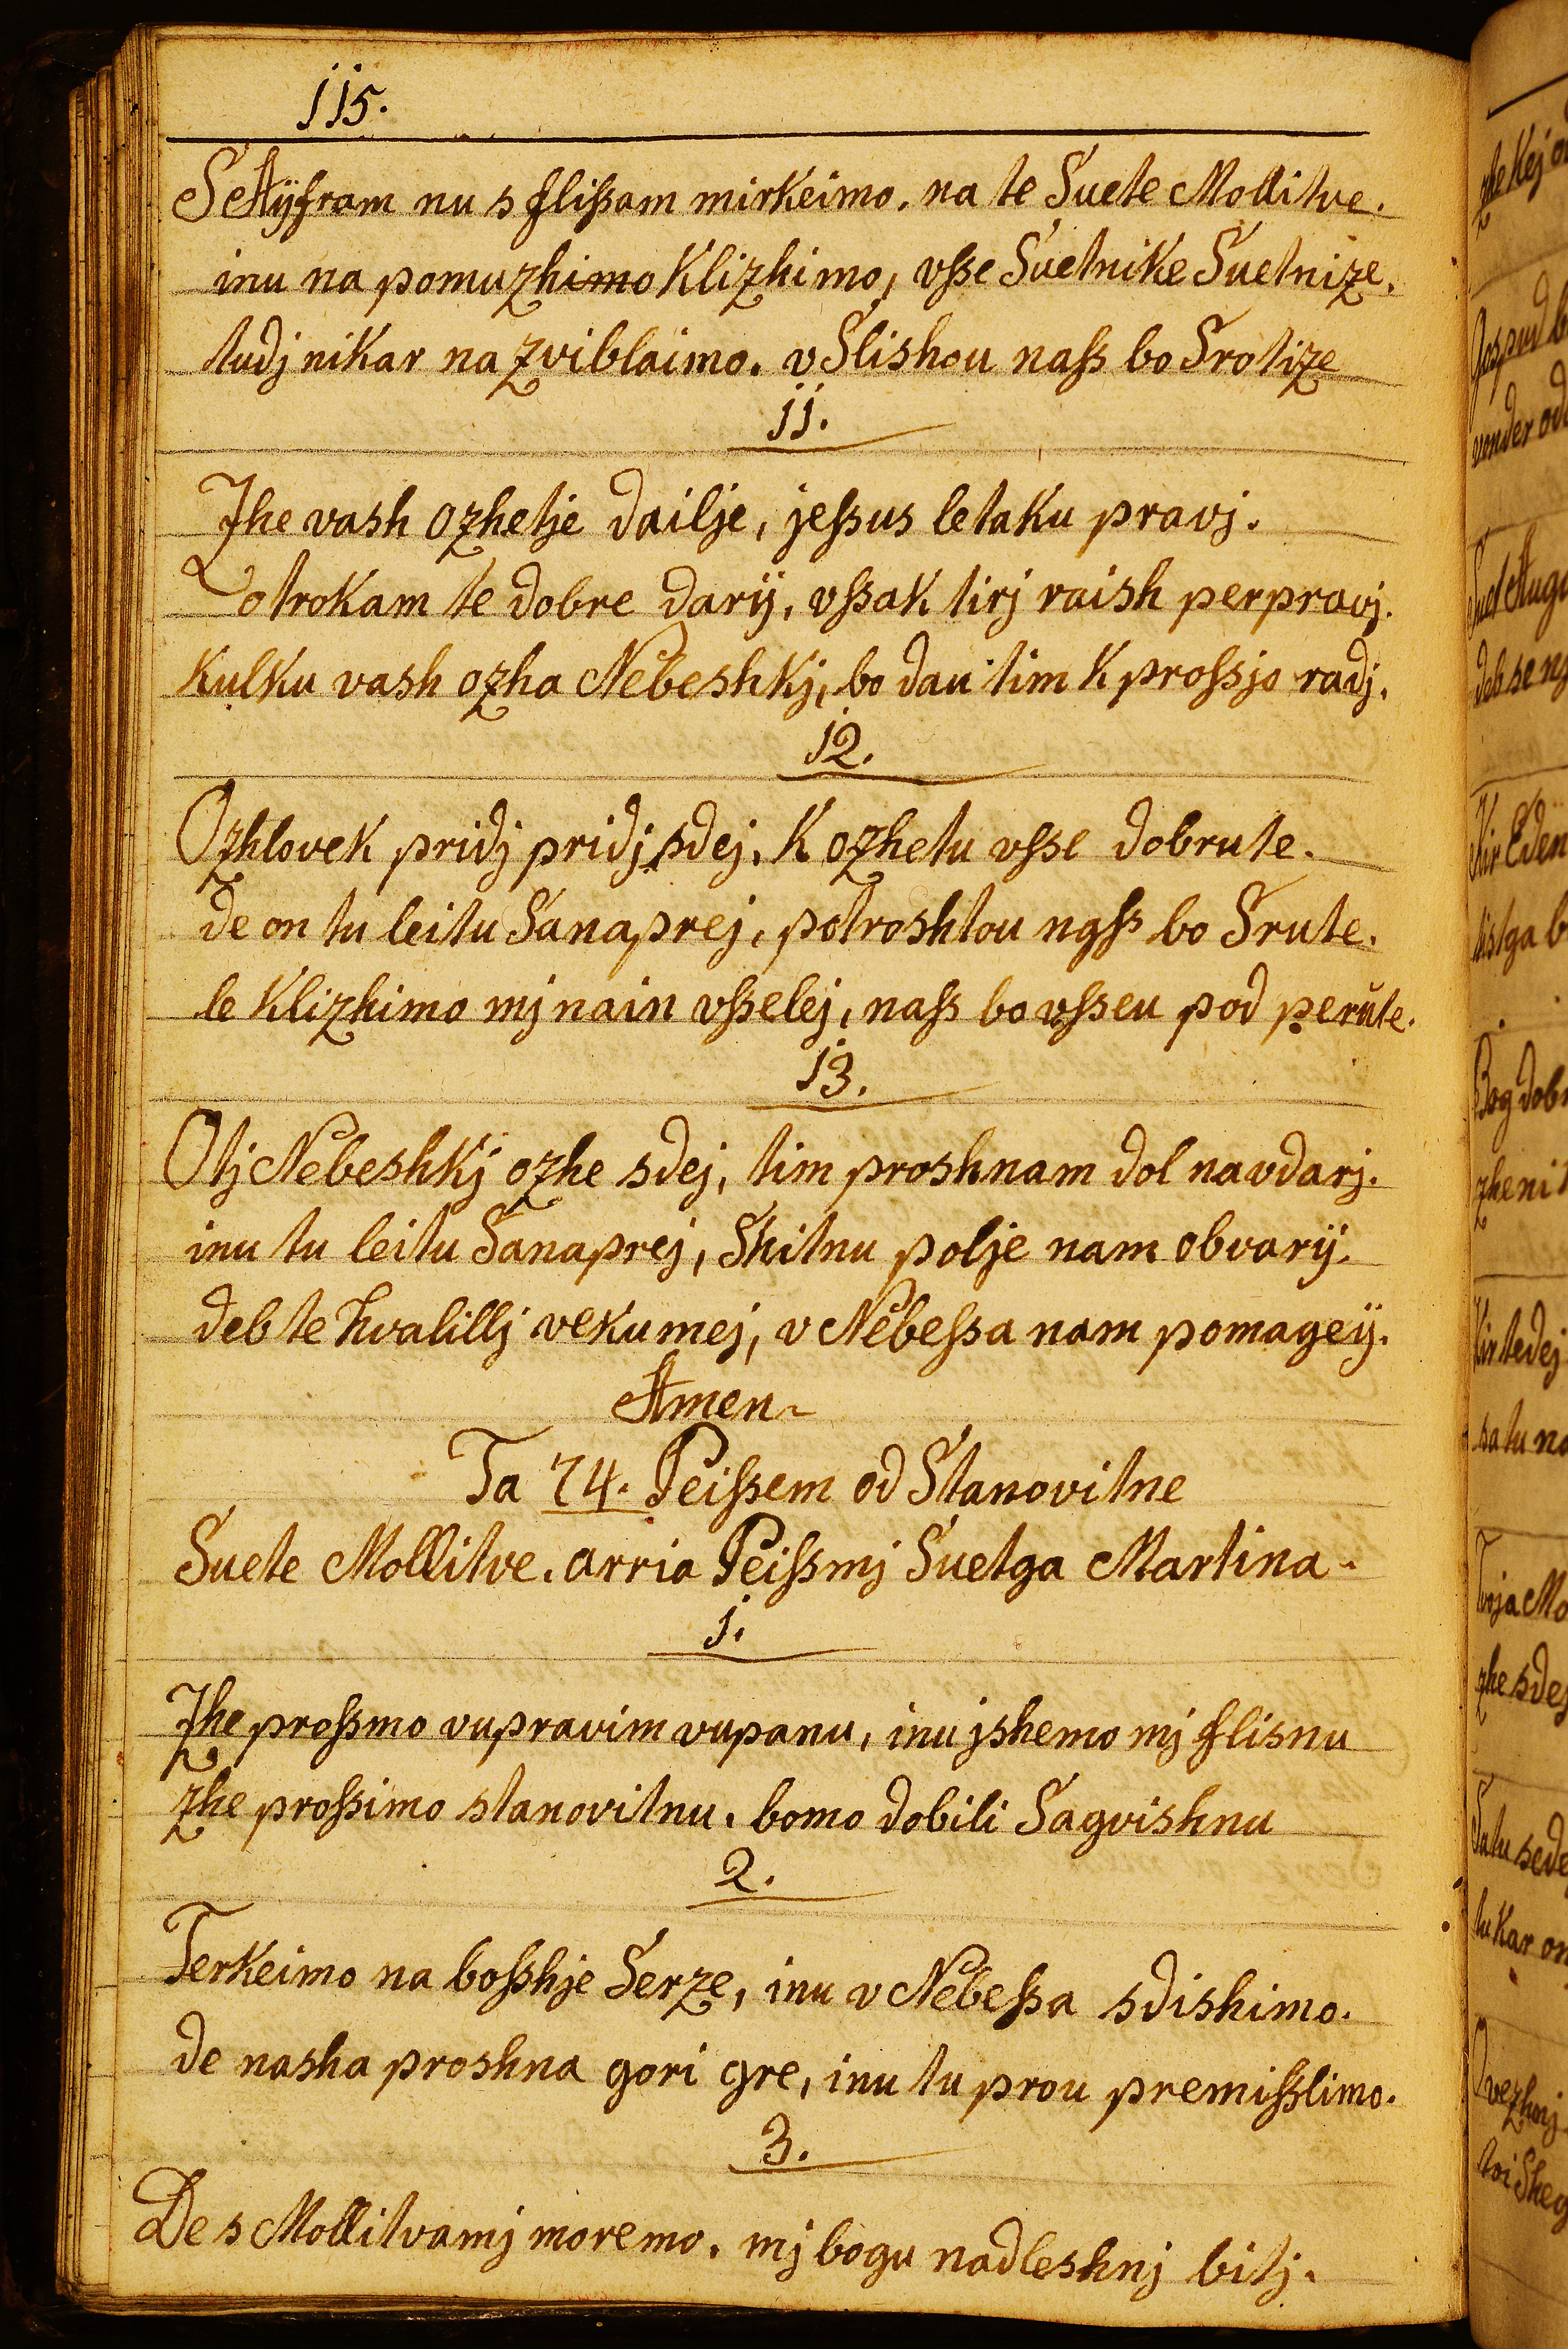 115.
S Aÿfram nu s flissam mirkeimo, na te Suete Mollitve.
inu na pomuzhimo Klizhimo, vsse Suetnike Suetnize.
tudj nikar na zviblaimo. v Slishou nass bo Srotize
11.
Zhe vash ozhetje dailje, jessus letaku pravj.
otrokam te dobre darÿ, vssak tirj raish perpravj.
kulku vash ozha Nebeshkj, bo dau tim k prossjo radj.
12.
Ozhlovek pridj pridj sdej, K ozhetu vsse dobrute.
de on tu leitu Sanaprej, potroshtou nass bo Srute.
le Klizhimo mj nain vsselej, nass bo vsseu pod perute.
13.
O tj Nebeshkj ozhe sdej, tim proshnam dol navdarj.
inu tu leitu Sanaprej, Shitnu polje nam obvarÿ.
deb te hvalillj vekumej, v Nebessa nam pomageÿ.
Amen
Ta 74. Peissem od Stanovitne
Suete Mollitve. arria Peissmj Suetga Martina
1.
Zhe prossmo vupravim vupanu, inu jshemo mj flisnu
zhe prossimo stanovitnu. bomo dobili Sagvishnu
2.
Terkeimo na bosshje Serze, inu v Nebessa sdishimo.
de nasha proshna gori gre, inu tu prou premisslimo.
3.
De s Mollitvamj moremo. mj bogu nadleshnj bitj.